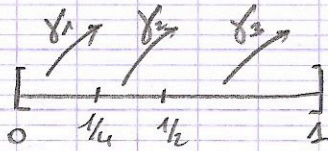 γ1 γ2 γ3
0 1/4 1/2 1